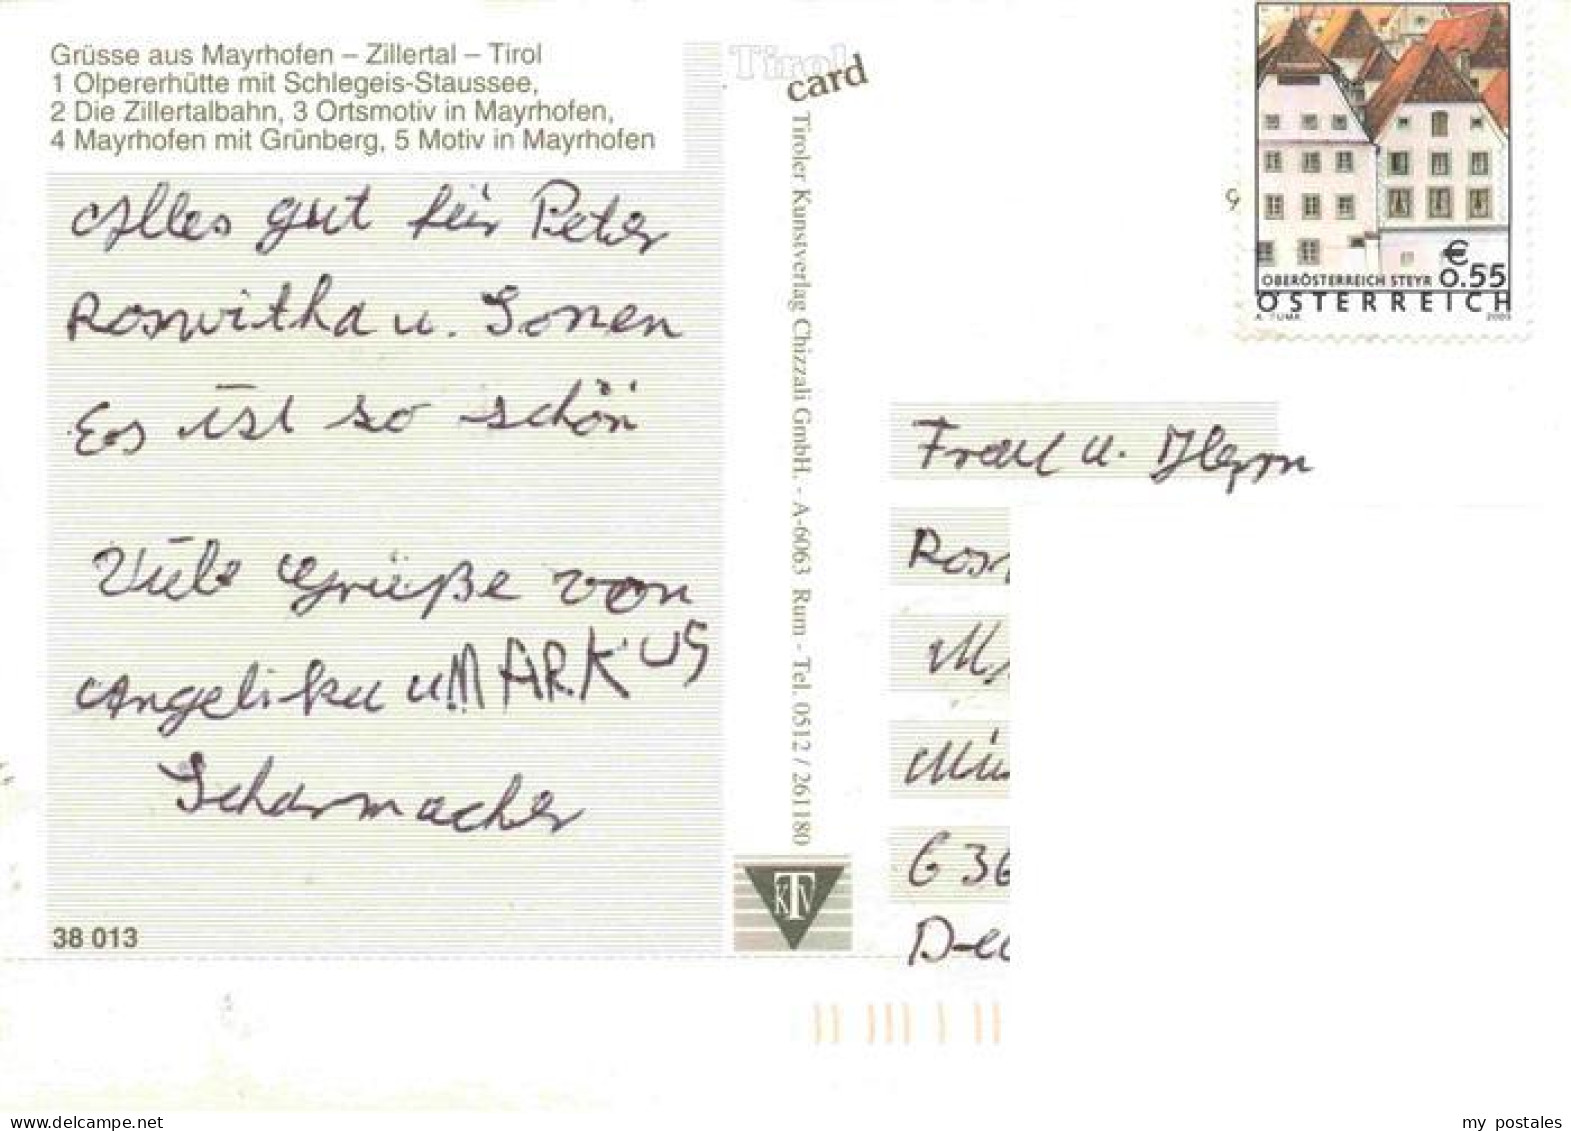 Grüsse aus Mayrhofen – Zillertal – Tirol
1 Olpererhütte mit Schlegeis-Staussee,
2 Die Zillertalbahn, 3 Ortsmotiv in Mayrhofen,
4 Mayrhofen mit Grünberg, 5 Motiv in Mayrhofen
Alles gut für Peter
Roswitha u. Sonen
Es ist so schön
Viele Grüße von
Angelika u MARKUS
Scharmacher
38 013
Tirol
card
Tiroler Kunstverlag Chizzali GmbH. - A-6063 Rum - Tel. 0512 / 261180
KTV
€
0.55
OBERÖSTERREICH STEYR
ÖSTERREICH
A. TUMA 2003
Frau u. Herrn
Ros
Mü
636
D-
my postales